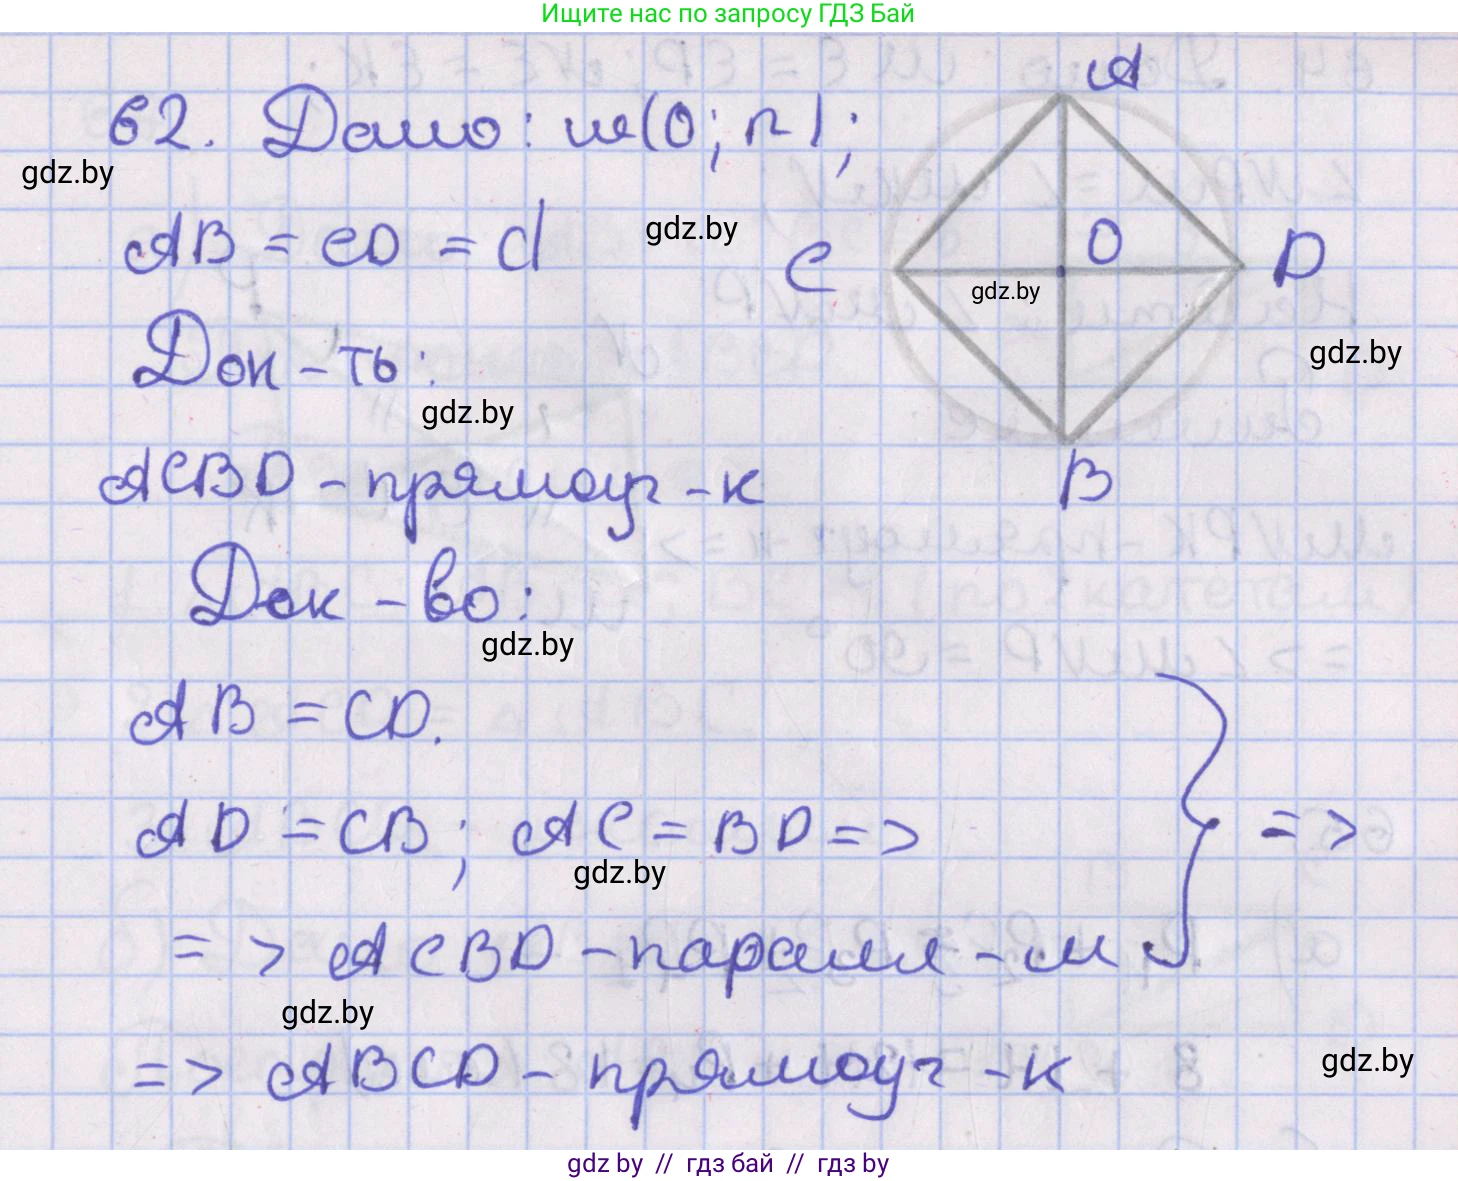 Ищите нас по запросу ГДЗ Бай
62. Дано: w(O; r);
A
gdz.by
AB = CD = d
gdz.by
C
O
D
gdz.by
Док-ть:
gdz.by
gdz.by
ACBD - прямоуг-к
B
Док-во:
gdz.by
AB = CD.
AD = CB; AC = BD =>
=>
gdz.by
=> ACBD - паралл-м
gdz.by
=> ABCD - прямоуг-к
gdz.by
gdz by // гдз бай // гдз by